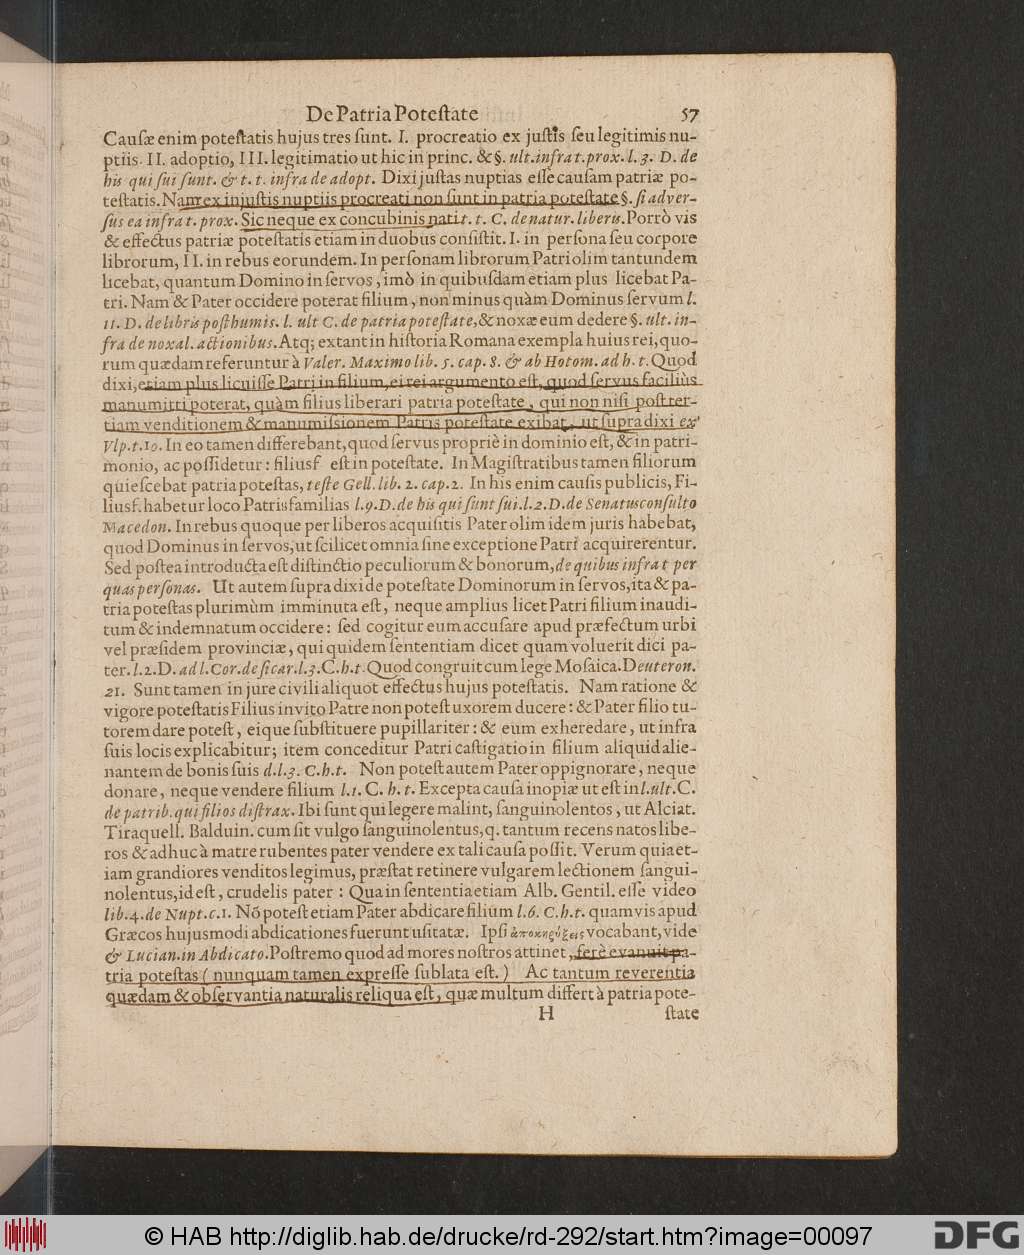 De Patria Poteſtate 57
Cauſæ enim poteſtatis hujus tres ſunt. I. procreatio ex juſtis ſeu legitimis nu-
ptiis. II. adoptio, III. legitimatio ut hic in princ. & §. ult. infra t. prox. l. 3. D. de
his qui ſui ſunt. & t. t. infra de adopt. Dixi juſtas nuptias eſſe cauſam patriæ po-
teſtatis. Nam ex injuſtis nuptiis procreati non ſunt in patria poteſtate §. ſi adver-
ſus ea infra t. prox. Sic neque ex concubinis nati t. t. C. de natur. liberis. Porrò vis
& effectus patriæ poteſtatis etiam in duobus conſiſtit. I. in perſona ſeu corpore
librorum, II. in rebus eorundem. In perſonam librorum Patri olim tantundem
licebat, quantum Domino in ſervos, imò in quibuſdam etiam plus licebat Pa-
tri. Nam & Pater occidere poterat filium, non minus quàm Dominus ſervum l.
11. D. de libris poſthumis. l. ult C. de patria poteſtate, & noxæ eum dedere §. ult. in-
fra de noxal. actionibus. Atq; extant in hiſtoria Romana exempla huius rei, quo-
rum quædam referuntur à Valer. Maximo lib. 5. cap. 8. & ab Hotom. ad h. t. Quod
dixi, etiam plus licuiſſe Patri in filium, ei rei argumento eſt, quod ſervus faciliùs
manumitti poterat, quàm filius liberari patria poteſtate, qui non niſi poſt ter-
tiam venditionem & manumiſsionem Patris poteſtate exibat, ut ſupra dixi ex
Vlp. t. 10. In eo tamen differebant, quod ſervus propriè in dominio eſt, & in patri-
monio, ac poſſidetur: filiusf eſt in poteſtate. In Magiſtratibus tamen filiorum
quieſcebat patria poteſtas, teſte Gell. lib. 2. cap. 2. In his enim cauſis publicis, Fi-
liusf. habetur loco Patrisfamilias l. 9. D. de his qui ſunt ſui. l. 2. D. de Senatusconſulto
Macedon. In rebus quoque per liberos acquiſitis Pater olim idem juris habebat,
quod Dominus in ſervos, ut ſcilicet omnia ſine exceptione Patri acquirerentur.
Sed poſtea introducta eſt diſtinctio peculiorum & bonorum, de quibus infra t per
quas perſonas. Ut autem ſupra dixi de poteſtate Dominorum in ſervos, ita & pa-
tria poteſtas plurimùm imminuta eſt, neque amplius licet Patri filium inaudi-
tum & indemnatum occidere: ſed cogitur eum accuſare apud præfectum urbi
vel præſidem provinciæ, qui quidem ſententiam dicet quam voluerit dici pa-
ter. l. 2. D. ad l. Cor. de ſicar. l. 3. C. h. t. Quod congruit cum lege Moſaica. Deuteron.
21. Sunt tamen in jure civili aliquot effectus hujus poteſtatis. Nam ratione &
vigore poteſtatis Filius invito Patre non poteſt uxorem ducere: & Pater filio tu-
torem dare poteſt, eique ſubſtituere pupillariter: & eum exheredare, ut infra
ſuis locis explicabitur; item conceditur Patri caſtigatio in filium aliquid alie-
nantem de bonis ſuis d. l. 3. C. h. t. Non poteſt autem Pater oppignorare, neque
donare, neque vendere filium l. 1. C. h. t. Excepta cauſa inopiæ ut eſt in l. ult. C.
de patrib. qui filios diſtrax. Ibi ſunt qui legere malint, ſanguinolentos, ut Alciat.
Tiraquell. Balduin. cum ſit vulgo ſanguinolentus, q. tantum recens natos libe-
ros & adhuc à matre rubentes pater vendere ex tali cauſa poſſit. Verum quia et-
iam grandiores venditos legimus, præſtat retinere vulgarem lectionem ſangui-
nolentus, id eſt, crudelis pater: Qua in ſententia etiam Alb. Gentil. eſſe video
lib. 4. de Nupt. c. 1. Nõ poteſt etiam Pater abdicare filium l. 6. C. h. t. quamvis apud
Græcos hujusmodi abdicationes fuerunt uſitatæ. Ipſi ἀποκηρύξεις vocabant, vide
& Lucian. in Abdicato. Poſtremo quod ad mores noſtros attinet, ferè evanuit pa-
tria poteſtas (nunquam tamen expreſſe ſublata eſt.) Ac tantum reverentia
quædam & obſervantia naturalis reliqua eſt, quæ multum differt à patria pote-
H ſtate
© HAB http://diglib.hab.de/drucke/rd-292/start.htm?image=00097 DFG